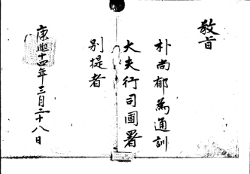 敎旨
朴尚郁爲通訓
大夫行司圃署
別提者
康熙十四年三月二十八日